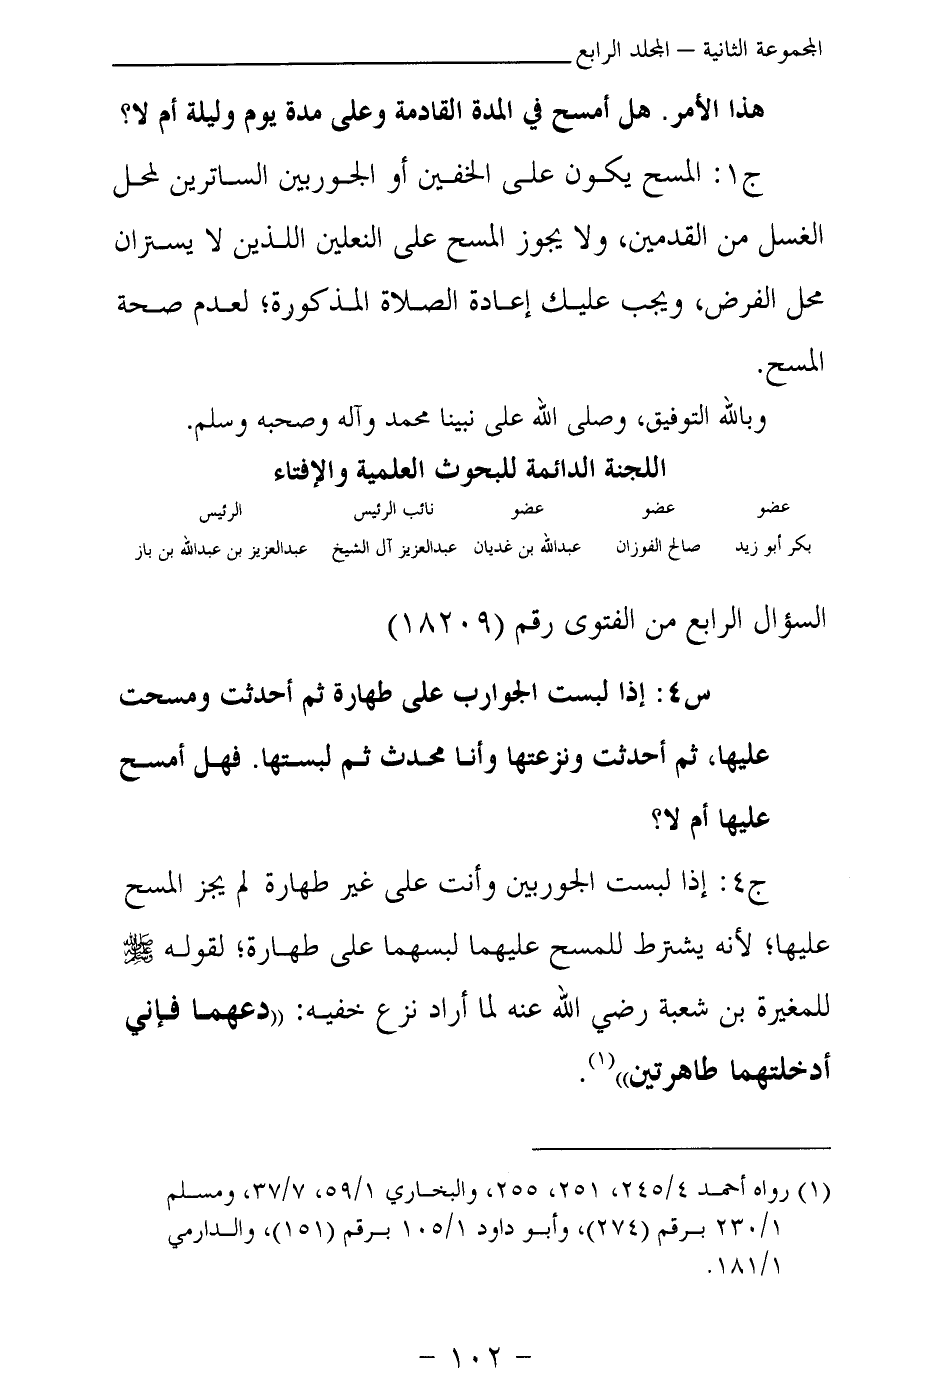 المجموعة الثانية – المجلد الرابع
هذا الأمر. هل أمسح في المدة القادمة وعلى مدة يوم وليلة أم لا؟
ج١: المسح يكون على الخفين أو الجوربين الساترين لمحل
الغسل من القدمين، ولا يجوز المسح على النعلين اللذين لا يستران
محل الفرض، ويجب عليك إعادة الصلاة المذكورة؛ لعدم صحة
المسح.
وبالله التوفيق، وصلى الله على نبينا محمد وآله وصحبه وسلم.
اللجنة الدائمة للبحوث العلمية والإفتاء
عضو عضو عضو نائب الرئيس الرئيس
بكر أبو زيد صالح الفوزان عبدالله بن غديان عبدالعزيز آل الشيخ عبدالعزيز بن عبدالله بن باز
السؤال الرابع من الفتوى رقم (١٨٢٠٩)
س٤: إذا لبست الجوارب على طهارة ثم أحدثت ومسحت
عليها، ثم أحدثت ونزعتها وأنا محدث ثم لبستها. فهل أمسح
عليها أم لا؟
ج٤: إذا لبست الجوربين وأنت على غير طهارة لم يجز المسح
عليها؛ لأنه يشترط للمسح عليهما لبسهما على طهارة؛ لقوله ﷺ
للمغيرة بن شعبة رضي الله عنه لما أراد نزع خفيه: ((دعهما فإني
أدخلتهما طاهرتين))(١).
(١) رواه أحمد ٢٤٥/٤، ٢٥١، ٢٥٥، والبخاري ٥٩/١، ٣٧/٧، ومسلم
٢٣٠/١ برقم (٢٧٤)، وأبو داود ١٠٥/١ برقم (١٥١)، والدارمي
١٨١/١.
– ١٠٢ –